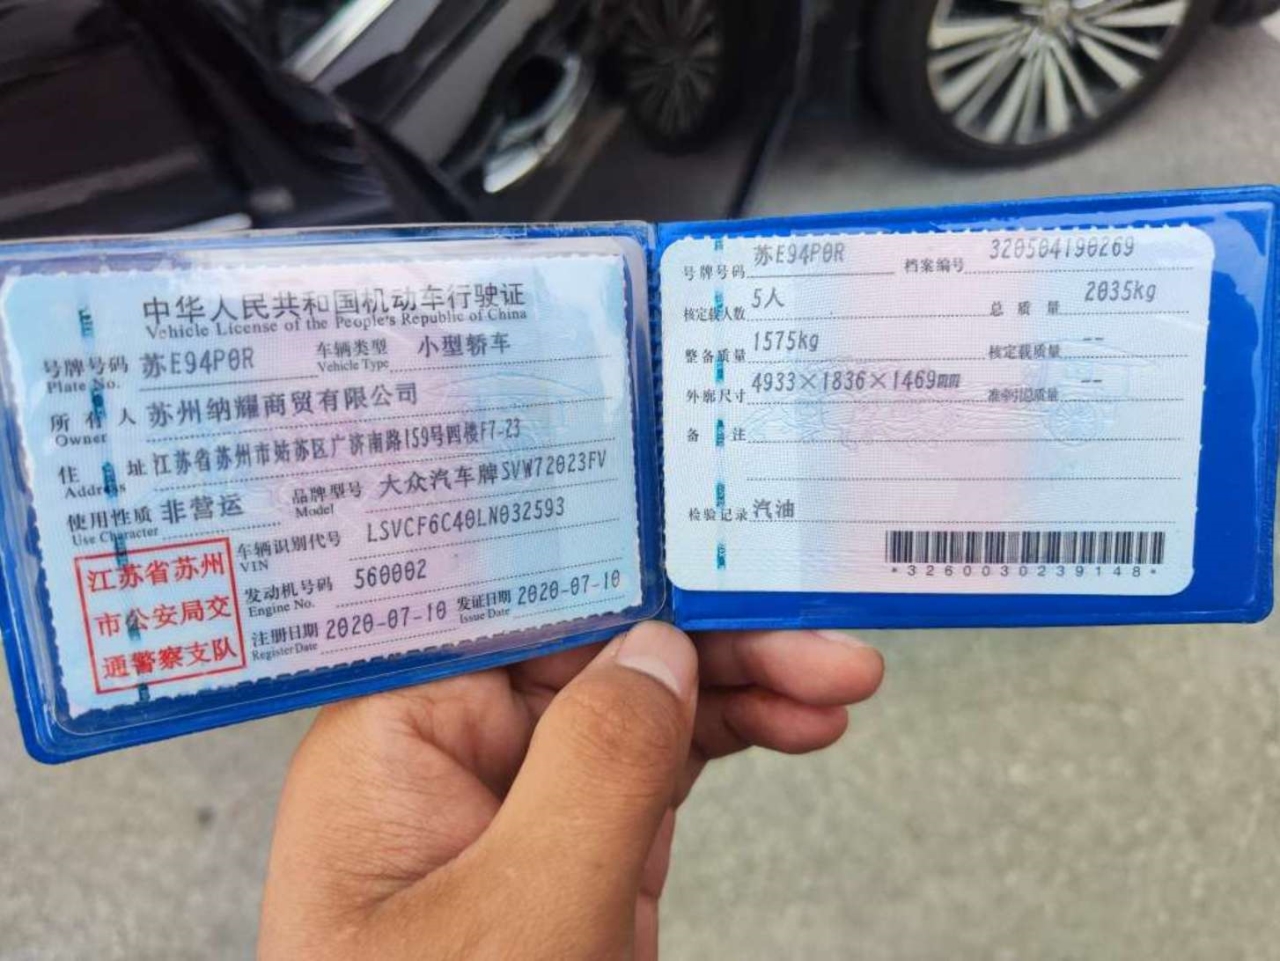 中华人民共和国机动车行驶证
Vehicle License of the People's Republic of China
号牌号码 苏E94P0R 车辆类型 小型轿车
Plate No. Vehicle Type
所有人 苏州纳耀商贸有限公司
Owner
住址 江苏省苏州市姑苏区广济南路159号四楼F7-23
Address
使用性质 非营运 品牌型号 大众汽车牌SVW72023FV
Use Character Model
车辆识别代号 LSVCF6C40LN032593
VIN
发动机号码 560002
Engine No.
注册日期 2020-07-10 发证日期 2020-07-10
Register Date Issue Date
江苏省苏州
市公安局交
通警察支队
号牌号码 苏E94P0R 档案编号 320504190269
核定载人数 5人 总质量 2035kg
整备质量 1575kg 核定载质量 --
外廓尺寸 4933×1836×1469mm 准牵引总质量 --
备注
检验记录 汽油
*3260030239148*